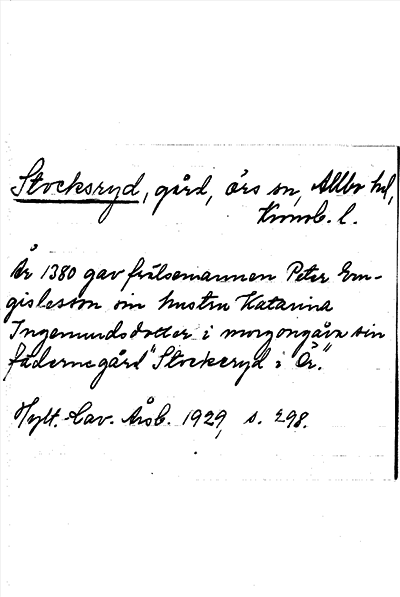 Stocksryd, gård, örs sn, Allbo hd,
Kronob. l.
År 1380 gav frälsemannen Peter Em-
gislesson sin hustru Katarina
Ingemundsdotter i morgongåva sin
fädernegård "Stockeryd i Ör."
Hylt.-Cav. Årsb. 1929, s. 298.